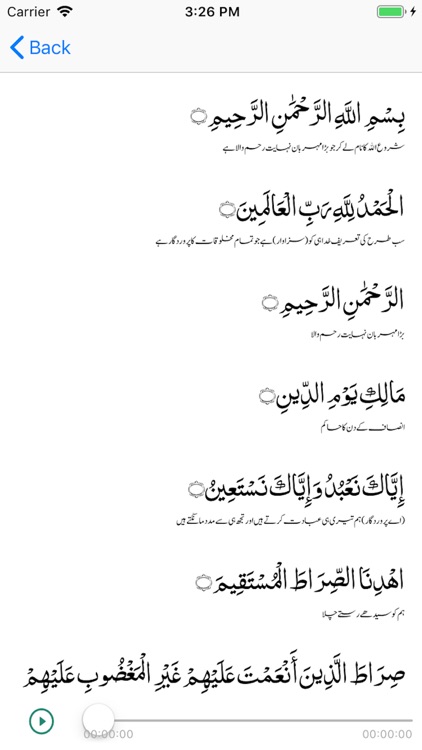 Carrier 3:26 PM
Back
بِسْمِ اللَّهِ الرَّحْمَٰنِ الرَّحِيمِ ۝
شروع الله کا نام لے کر جو بڑا مہربان نہایت رحم والا ہے
الْحَمْدُ لِلَّهِ رَبِّ الْعَالَمِينَ ۝
سب طرح کی تعریف خدا ہی کو (سزاوار) ہے جو تمام مخلوقات کا پروردگار ہے
الرَّحْمَٰنِ الرَّحِيمِ ۝
بڑا مہربان نہایت رحم والا
مَالِكِ يَوْمِ الدِّينِ ۝
انصاف کے دن کا حاکم
إِيَّاكَ نَعْبُدُ وَإِيَّاكَ نَسْتَعِينُ ۝
(اے پروردگار) ہم تیری ہی عبادت کرتے ہیں اور تجھ ہی سے مدد مانگتے ہیں
اهْدِنَا الصِّرَاطَ الْمُسْتَقِيمَ ۝
ہم کو سیدھے رستے چلا
صِرَاطَ الَّذِينَ أَنْعَمْتَ عَلَيْهِمْ غَيْرِ الْمَغْضُوبِ عَلَيْهِمْ
00:00:00 00:00:00